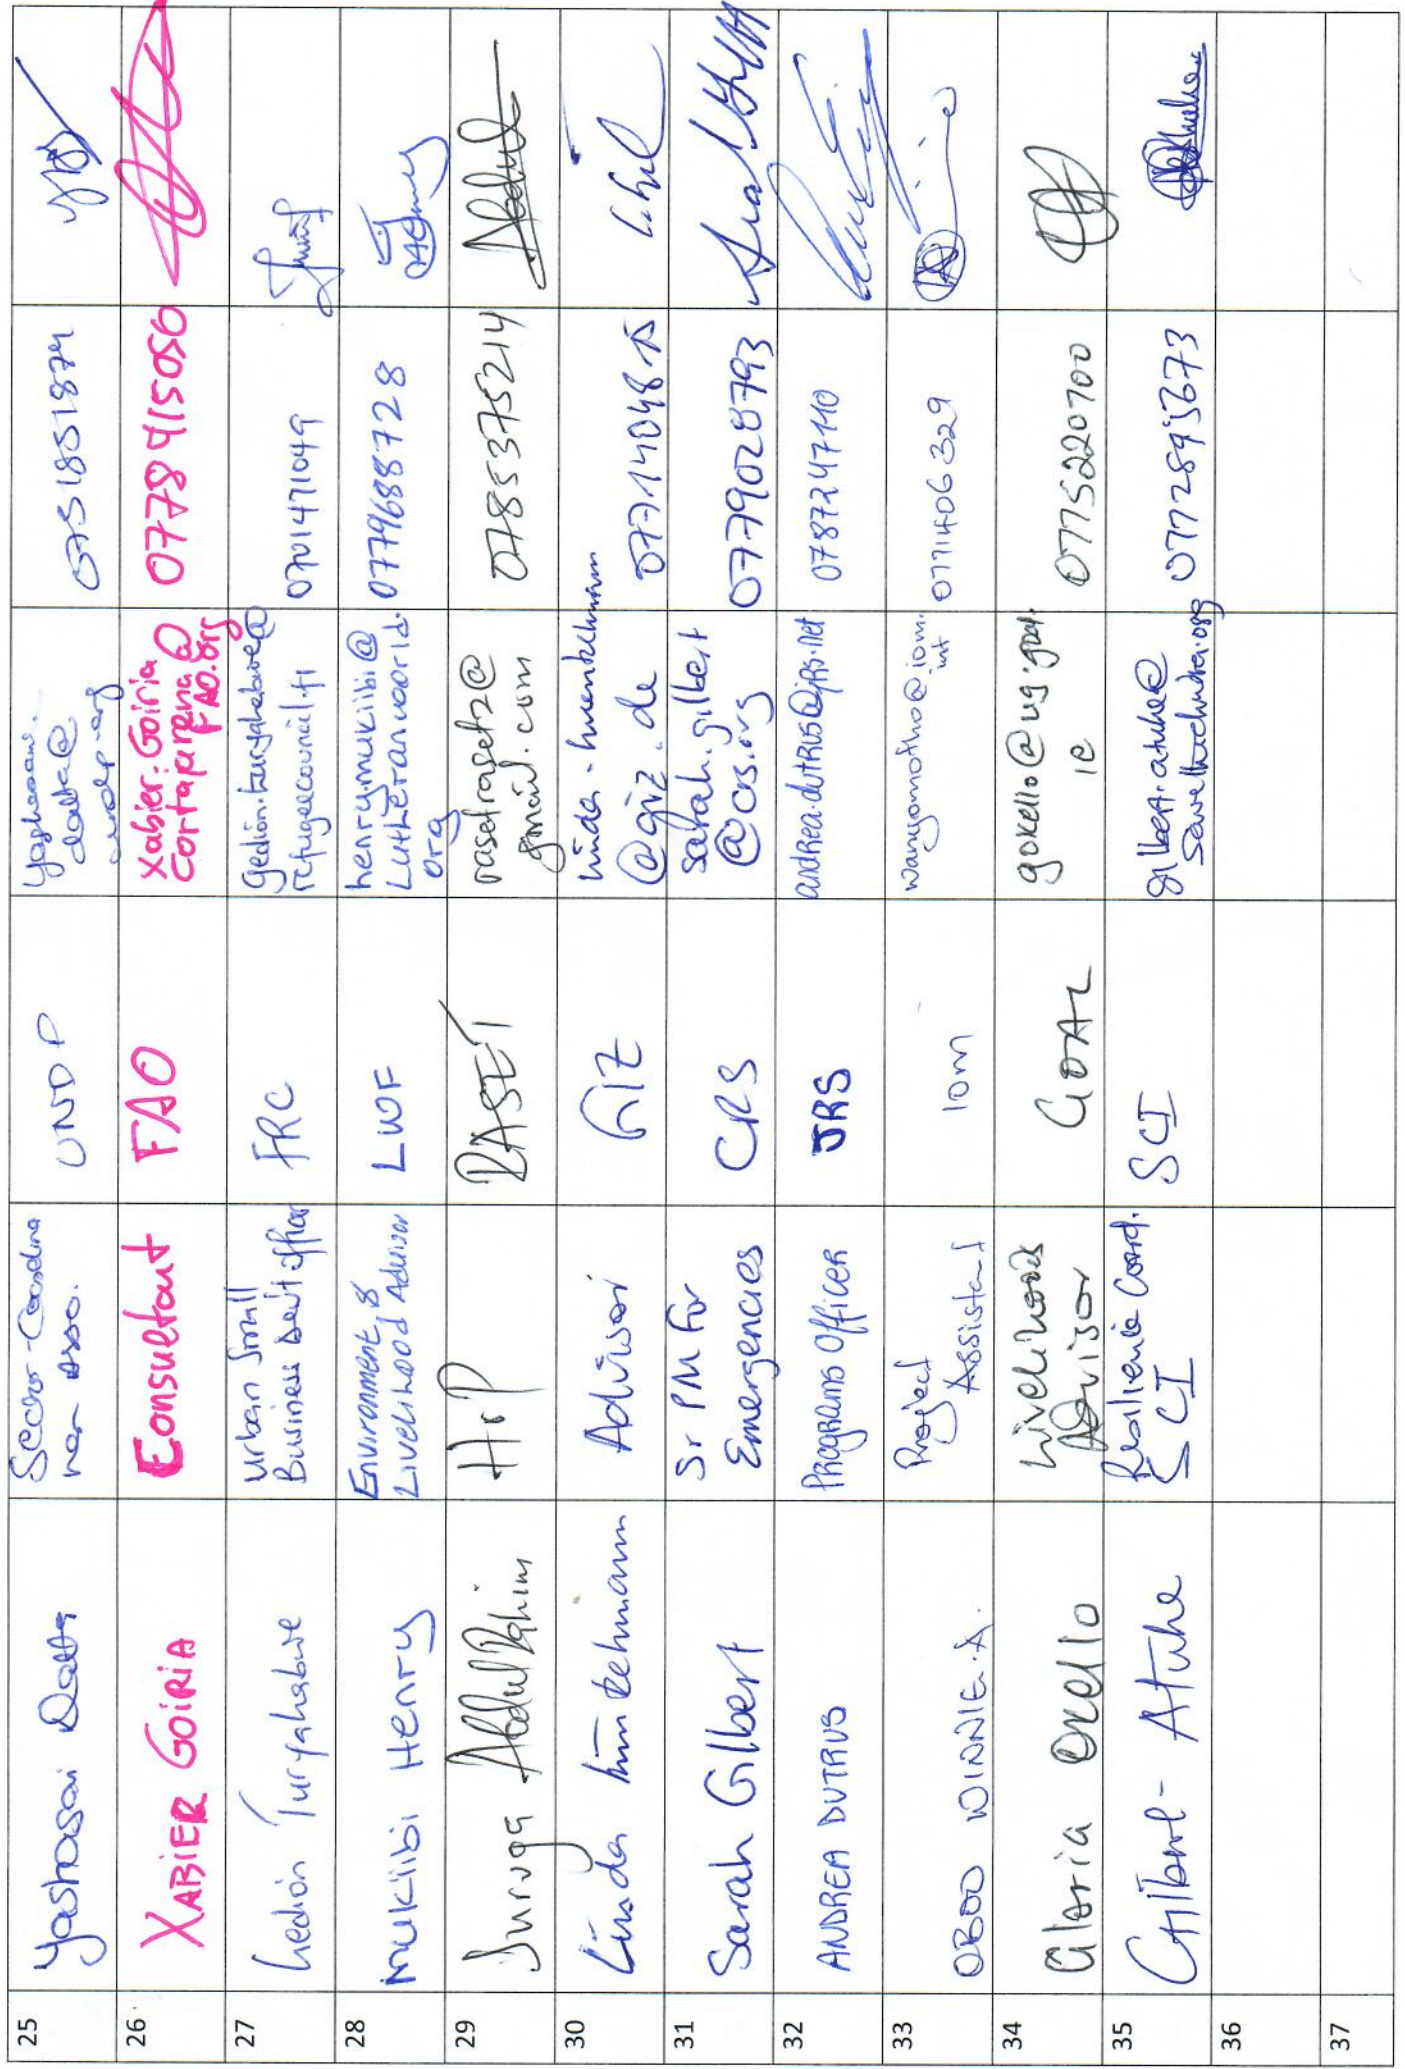 25
Yashasai Datta
UNDP
26
XABIER GOIRIA
Consultant
FAO
Xabier.Goiria
Cortajarena@
FAO.org
0778415050
27
Gedion Turyahabwe
Urban Small
Business Devt officer
FRC
gedion.turyahabwe@
refugeecouncil.fi
0701471049
28
Mukiibi Henry
Environment &
Livelihood Advisor
LWF
henry.mukiibi@
Lutheranworld.
org
0779688728
29
Juruga Abdul Rahim
RASET
rasetraset2@
gmail.com
0785375214
30
Linda
Advisor
GIZ
@giz.de
31
Sarah Gilbert
Sr PM for
Emergencies
CRS
sarah.gilbert
@crs.org
0779028793
32
ANDREA DUTRUS
PROGRAMS Officer
JRS
andrea.dutrus@jrs.net
0787247110
33
OBOO WINNIE.A.
Project
Assistant
IOM
iom.
int
0771406329
34
Gloria Okello
Livelihoods
Advisor
GOAL
gokello@ug.goal.
ie
0775220700
35
Gilbert Atuhe
Resilience Coord.
SCI
SCI
gilbert.atuhe@
savethechildren.org
0772895673
36
37